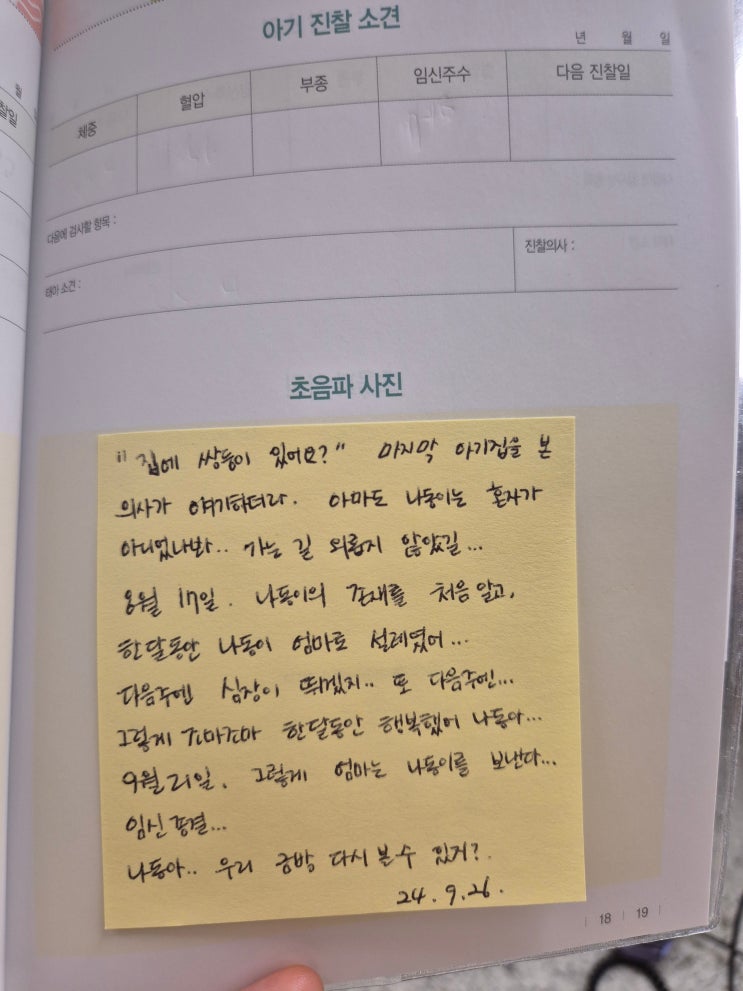 아기 진찰 소견
년 월 일
체중 혈압 부종 임신주수 다음 진찰일
다음에 검사할 항목 :
태아 소견 : 진찰의사 :
초음파 사진
"집에 쌍둥이 있어요?" 마지막 아기집을 본
의사가 얘기하더라. 아마도 나동이는 혼자가
아니었나봐.. 가는 길 외롭지 않았길...
8월 17일. 나동이의 존재를 처음 알고,
한달동안 나동이 엄마로 설레였어...
다음주엔 심장이 뛰겠지.. 또 다음주엔...
그렇게 조마조마 한달동안 행복했어 나동아...
9월 21일. 그렇게 엄마는 나동이를 보낸다...
임신종결...
나동아.. 우리 금방 다시 볼 수 있지?
24. 9. 26.
18 19
월
찰일